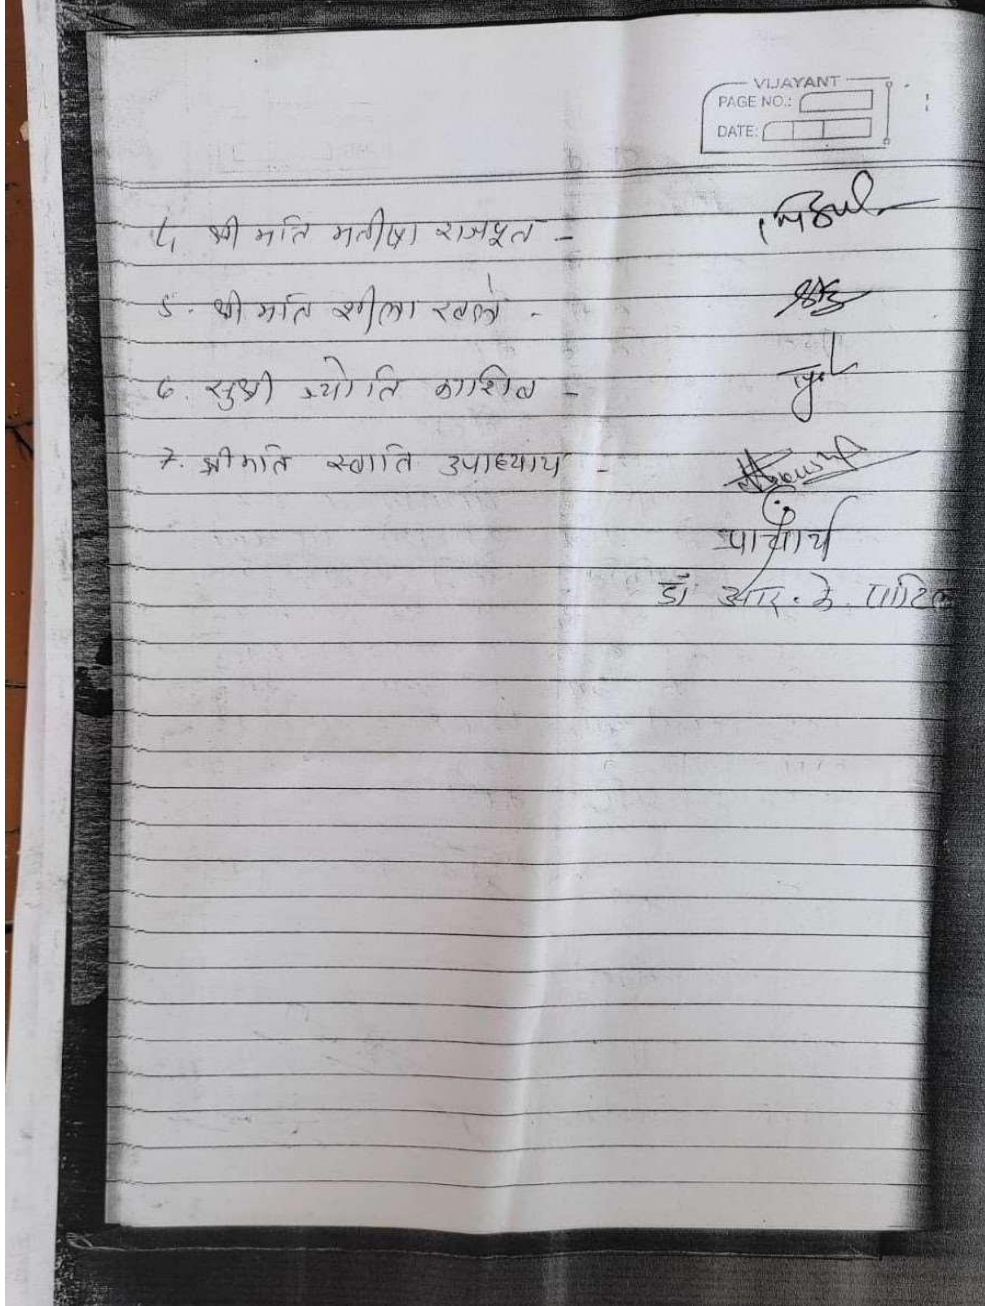 VIJAYANT
PAGE NO.:
DATE:
4. श्री मति मनीषा राजपूत -
5. श्री मति शीला खले -
6. सुश्री ज्योति काशिव -
7. श्रीमति स्वाति उपाध्याय -
प्राचार्य
डॉ आर. के. पाटिल